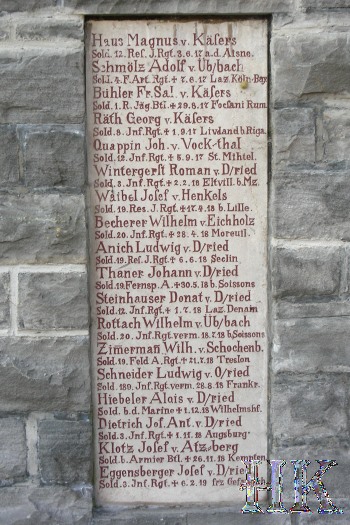 Haus Magnus v. Käsers
Sold. 12. Res. J. Rgt. 8.6.17 a.d. Aisne.
Schmölz Adolf v. Ub/bach
Sold. 4. F. Art. Rgt. + 7.6.17 Laz. Köln-Bay
Bühler Fr. Sal. v. Käsers
Sold. 1. R. Jäg. Btl. + 29.8.17 Focsani Rum.
Räth Georg v. Käsers
Sold. 8. Jnf. Rgt. + 1.9.17 Livland b. Riga.
Quappin Joh. v. Vock-thal
Sold. 12. Jnf. Rgt. + 5.9.17 St. Mihiel.
Wintergerst Roman v. D/ried
Sold. 3. Jnf. Rgt. + 2.2.18 Eltvill b. Mz.
Waibel Josef v. Henkels
Sold. 19. Res. J. Rgt + 17.4.18 b. Lille.
Becherer Wilhelm v. Eichholz
Sold. 20. Jnf. Rgt. + 28.4.18 Moreuil.
Anich Ludwig v. D/ried
Sold. 19. Ref. J. Rgt. + 6.6.18 Seclin.
Thaner Johann v. D/ried
Sold. 19. Fernsp. A. + 30.5.18 b. Soissons
Steinhauser Donat v. D/ried
Sold. 12. Jnf. Rgt. + 1.7.18 Laz. Denain
Rottach Wilhelm v. Ub/bach
Sold. 20. Jnf. Rgt. verm. 18.7.18 b. Soissons
Zimerman Wilh. v. Schochenb.
Sold. 19. Feld A. Rgt. + 21.7.18 Treslon
Schneider Ludwig v. O/ried
Sold. 189. Jnf. Rgt. verm. 28.8.18 Frankr.
Hiebeler Alois v. D/ried
Sold. b. d. Marine + 1.12.18 Wilhelmshf.
Dietrich Jof. Ant. v. D/ried
Sold. 3. Jnf. Rgt. + 1.11.18 Augsburg
Klotz Josef v. Atz/berg
Sold. b. Armier Btl. + 26.11.18 Kempten
Eggensberger Josef v. D/ried
Sold. 3. Jnf. Rgt. + 6.2.19 frz
HK